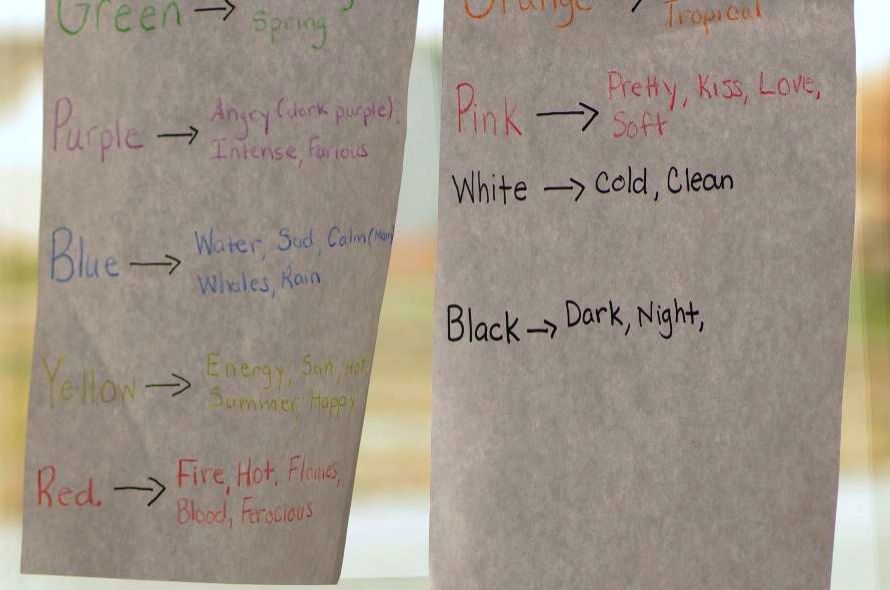 Green → Spring
Purple → Angry (dark purple),
Intense, Furious
Blue → Water, Sad, Calm
Whales, Rain
Yellow → Energy, Sun, Hot,
Summer, Happy
Red. → Fire, Hot, Flames,
Blood, Ferocious
Orange → Tropical
Pink → Pretty, Kiss, Love,
Soft
White → Cold, Clean
Black → Dark, Night,